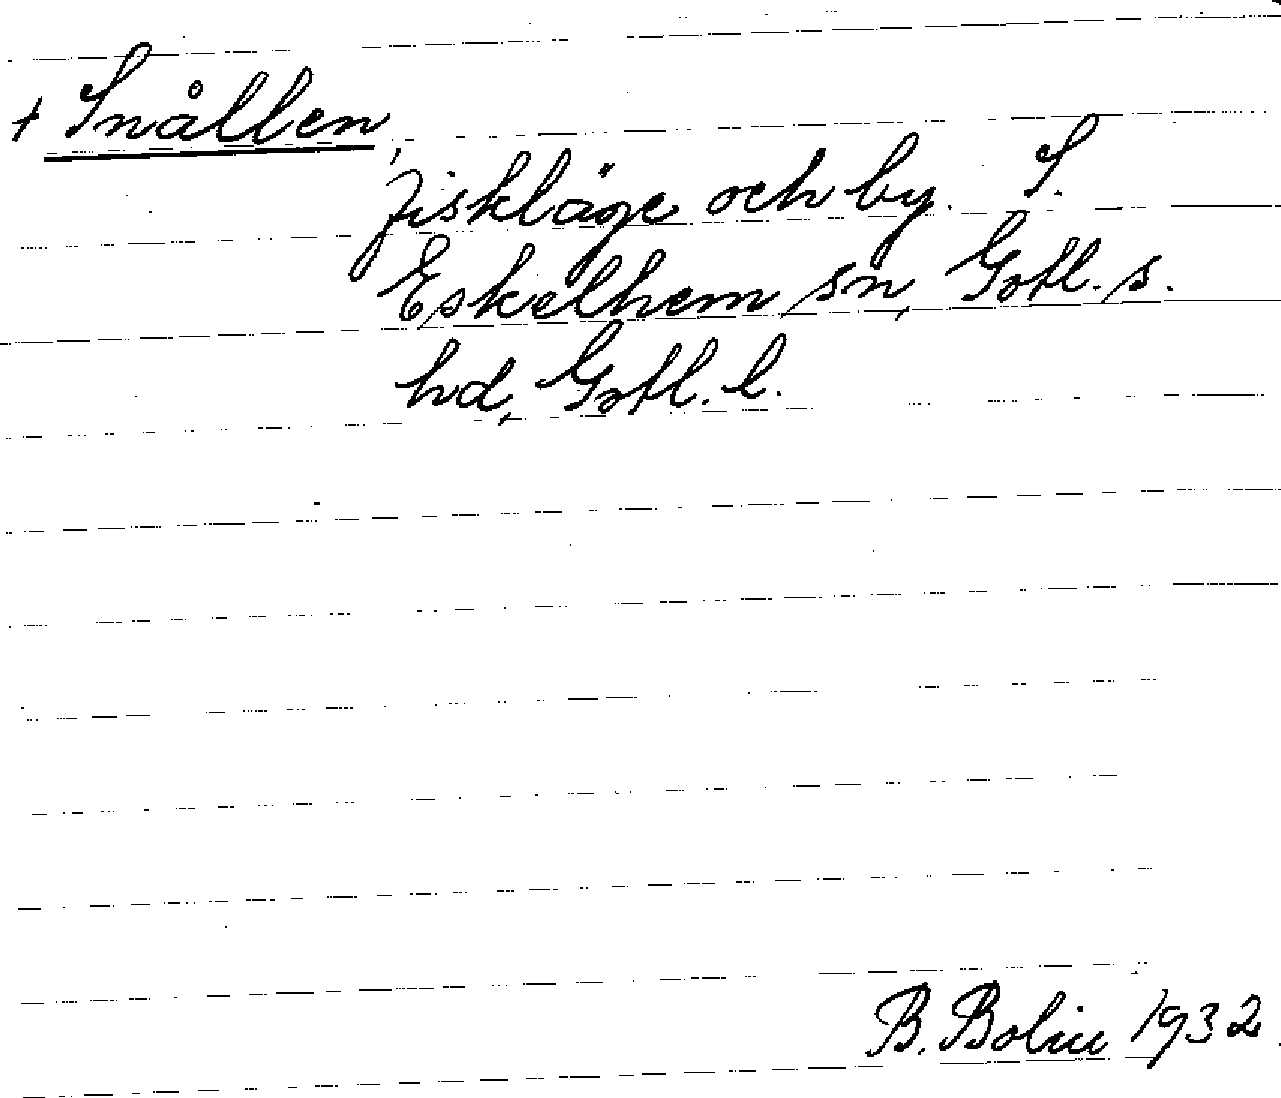 + Snållen,
fiskläge och by. S.
Eskelhem sn, Gotl. s.
hd, Gotl. l.
B. Bolin 1932